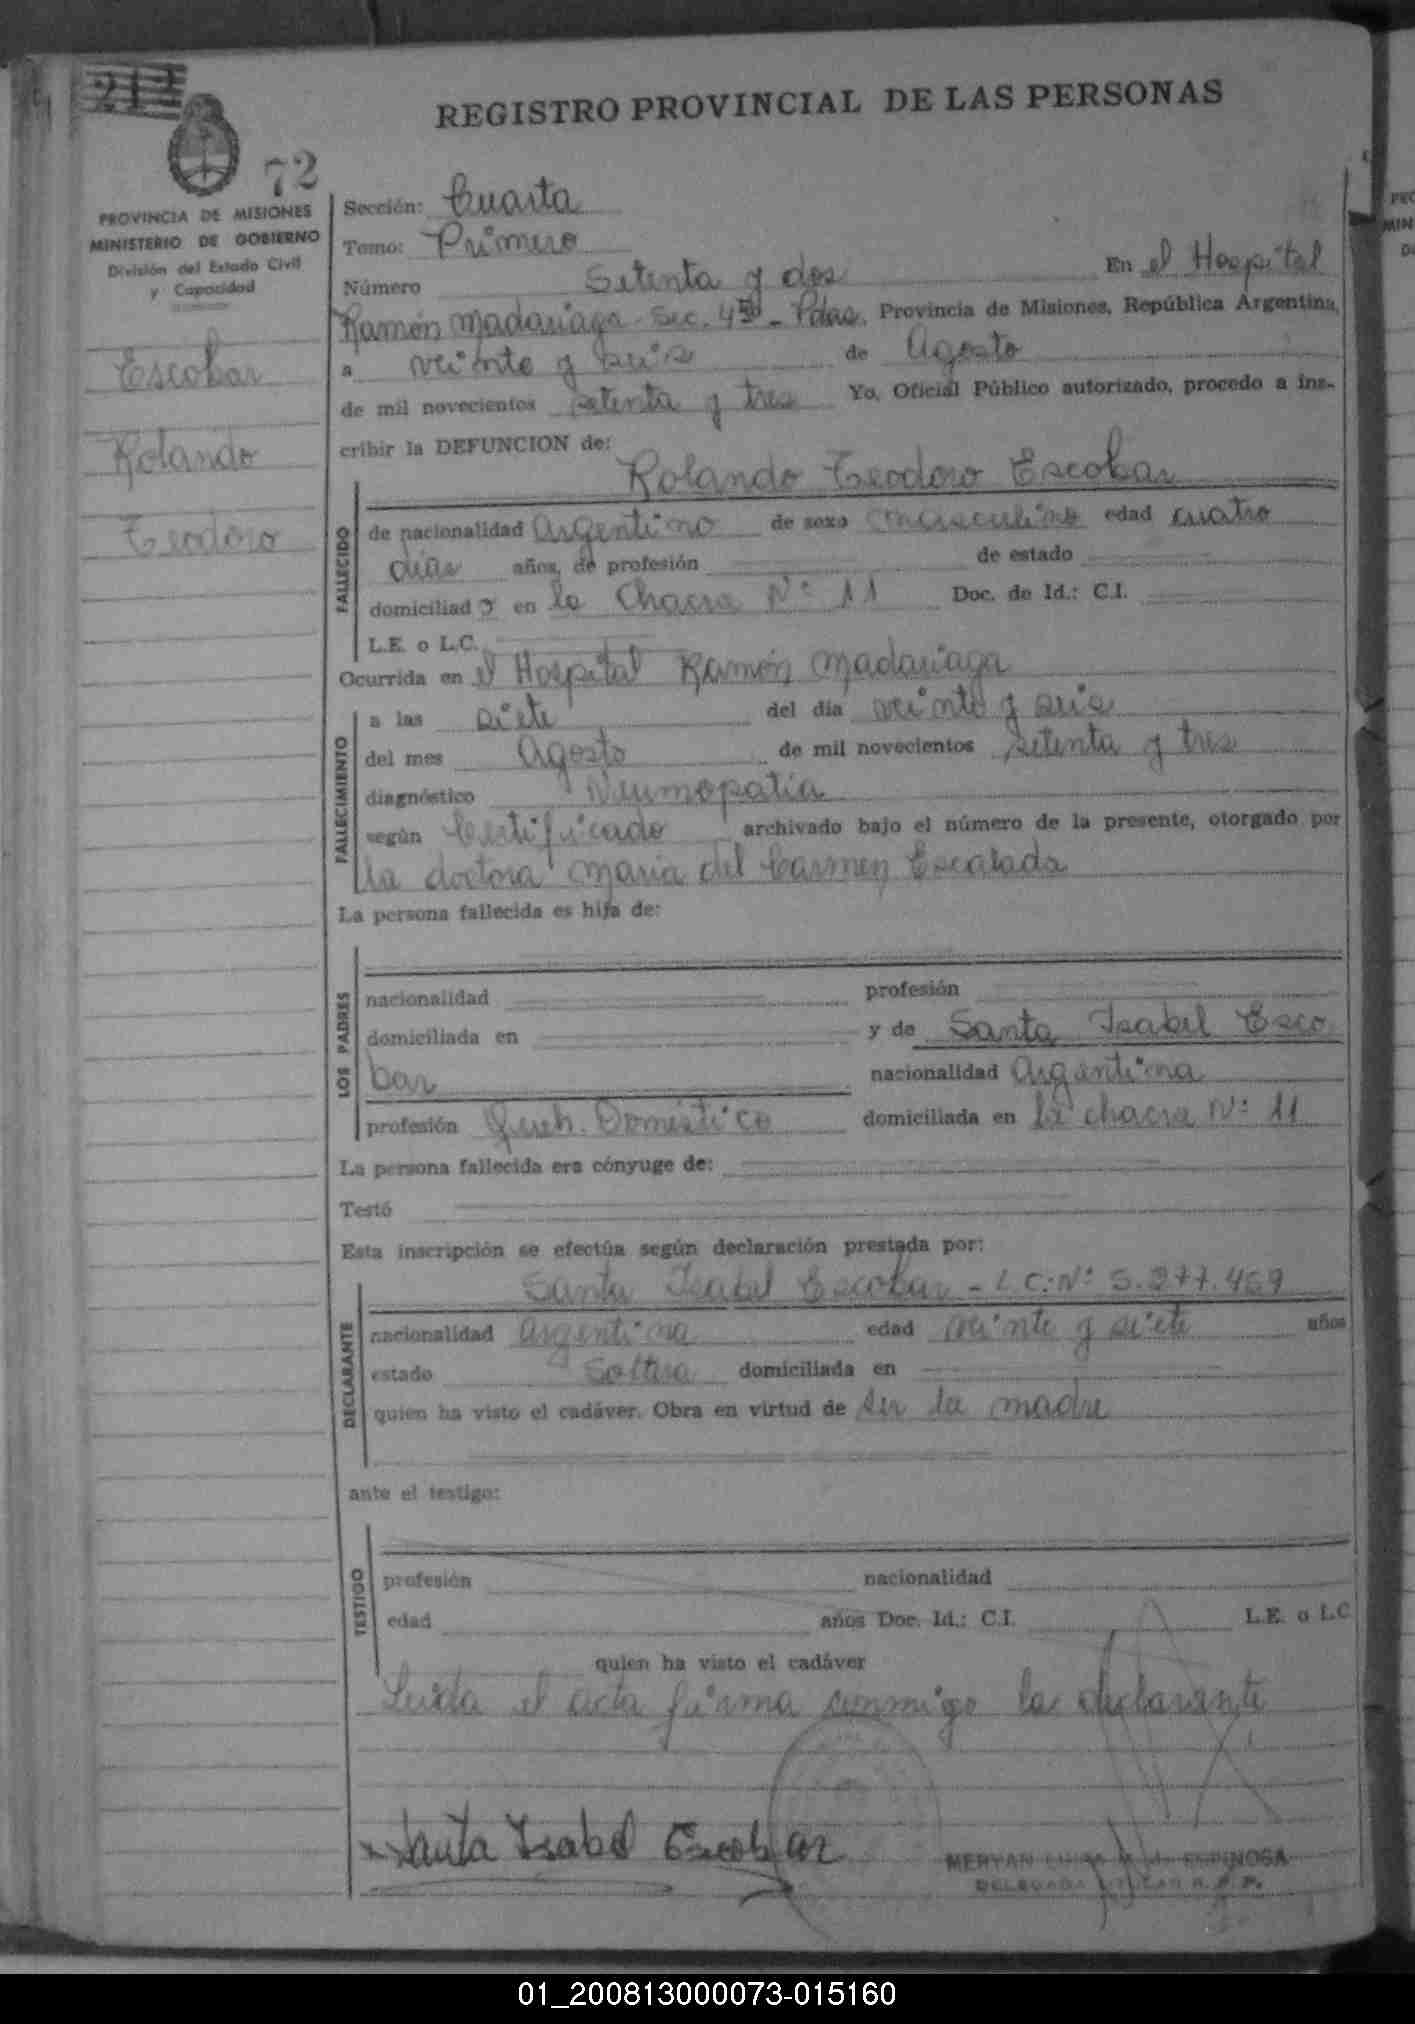 212
REGISTRO PROVINCIAL DE LAS PERSONAS
72
PROVINCIA DE MISIONES
MINISTERIO DE GOBIERNO
División del Estado Civil
y Capacidad
Escobar
Rolando
Teodoro
Sección: Cuarta
Tomo: Primero
Número Setenta y dos En el Hospital
Ramón Madariaga - Sec. 4ta - Pdas. Provincia de Misiones, República Argentina,
a veinte y seis de Agosto
de mil novecientos setenta y tres Yo, Oficial Público autorizado, procedo a ins-
cribir la DEFUNCION de:
Rolando Teodoro Escobar
FALLECIDO
de nacionalidad Argentino de sexo masculino edad cuatro
días años, de profesión de estado
domiciliado en la Chacra Nº 11 Doc. de Id.: C.I.
L.E. o L.C.
Ocurrida en el Hospital Ramón Madariaga
FALLECIMIENTO
a las siete del día veinte y seis
del mes Agosto de mil novecientos setenta y tres
diagnóstico Neumopatía
según Certificado archivado bajo el número de la presente, otorgado por
la doctora María del Carmen Escalada
La persona fallecida es hija de:
LOS PADRES
nacionalidad profesión
domiciliada en y de Santa Isabel Esco
bar nacionalidad Argentina
profesión Queh. Doméstico domiciliada en la chacra Nº 11
La persona fallecida era cónyuge de:
Testó
Esta inscripción se efectúa según declaración prestada por:
Santa Isabel Escobar - L.C: Nº 5.277.459
DECLARANTE
nacionalidad Argentina edad veinte y siete años
estado Soltera domiciliada en
quien ha visto el cadáver. Obra en virtud de ser la madre
ante el testigo:
TESTIGO
profesión nacionalidad
edad años Doc. Id.: C.I. L.E. o L.C
quien ha visto el cadáver
Leída el acta firma conmigo la declarante
Santa Isabel Escobar
MERYAN LUISA ESPINOSA
DELEGADA TITULAR R. P. P.
01_200813000073-015160